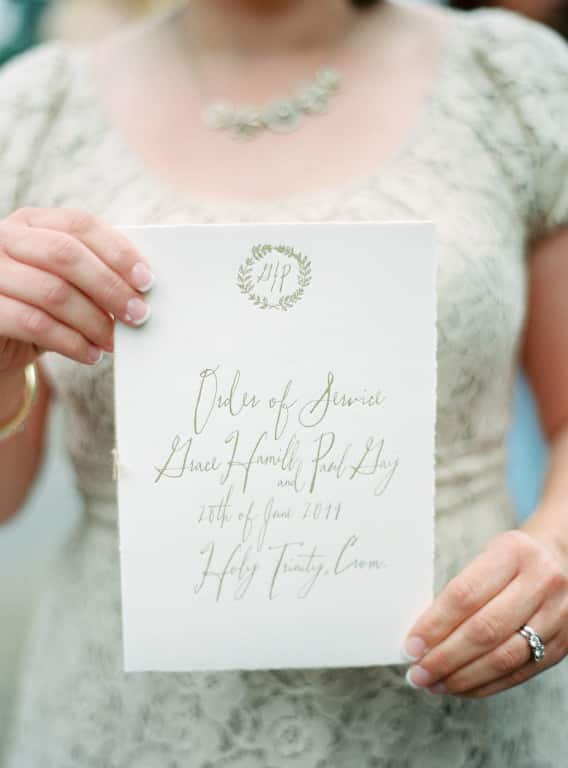 G/P
Order of Service
Grace Hamill
and Paul Gay
20th of June 2011
Holy Trinity, Crom.